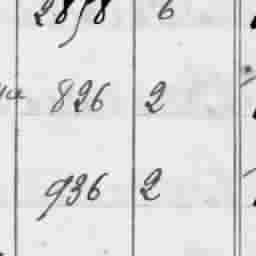 2858 6
826 2
936 2